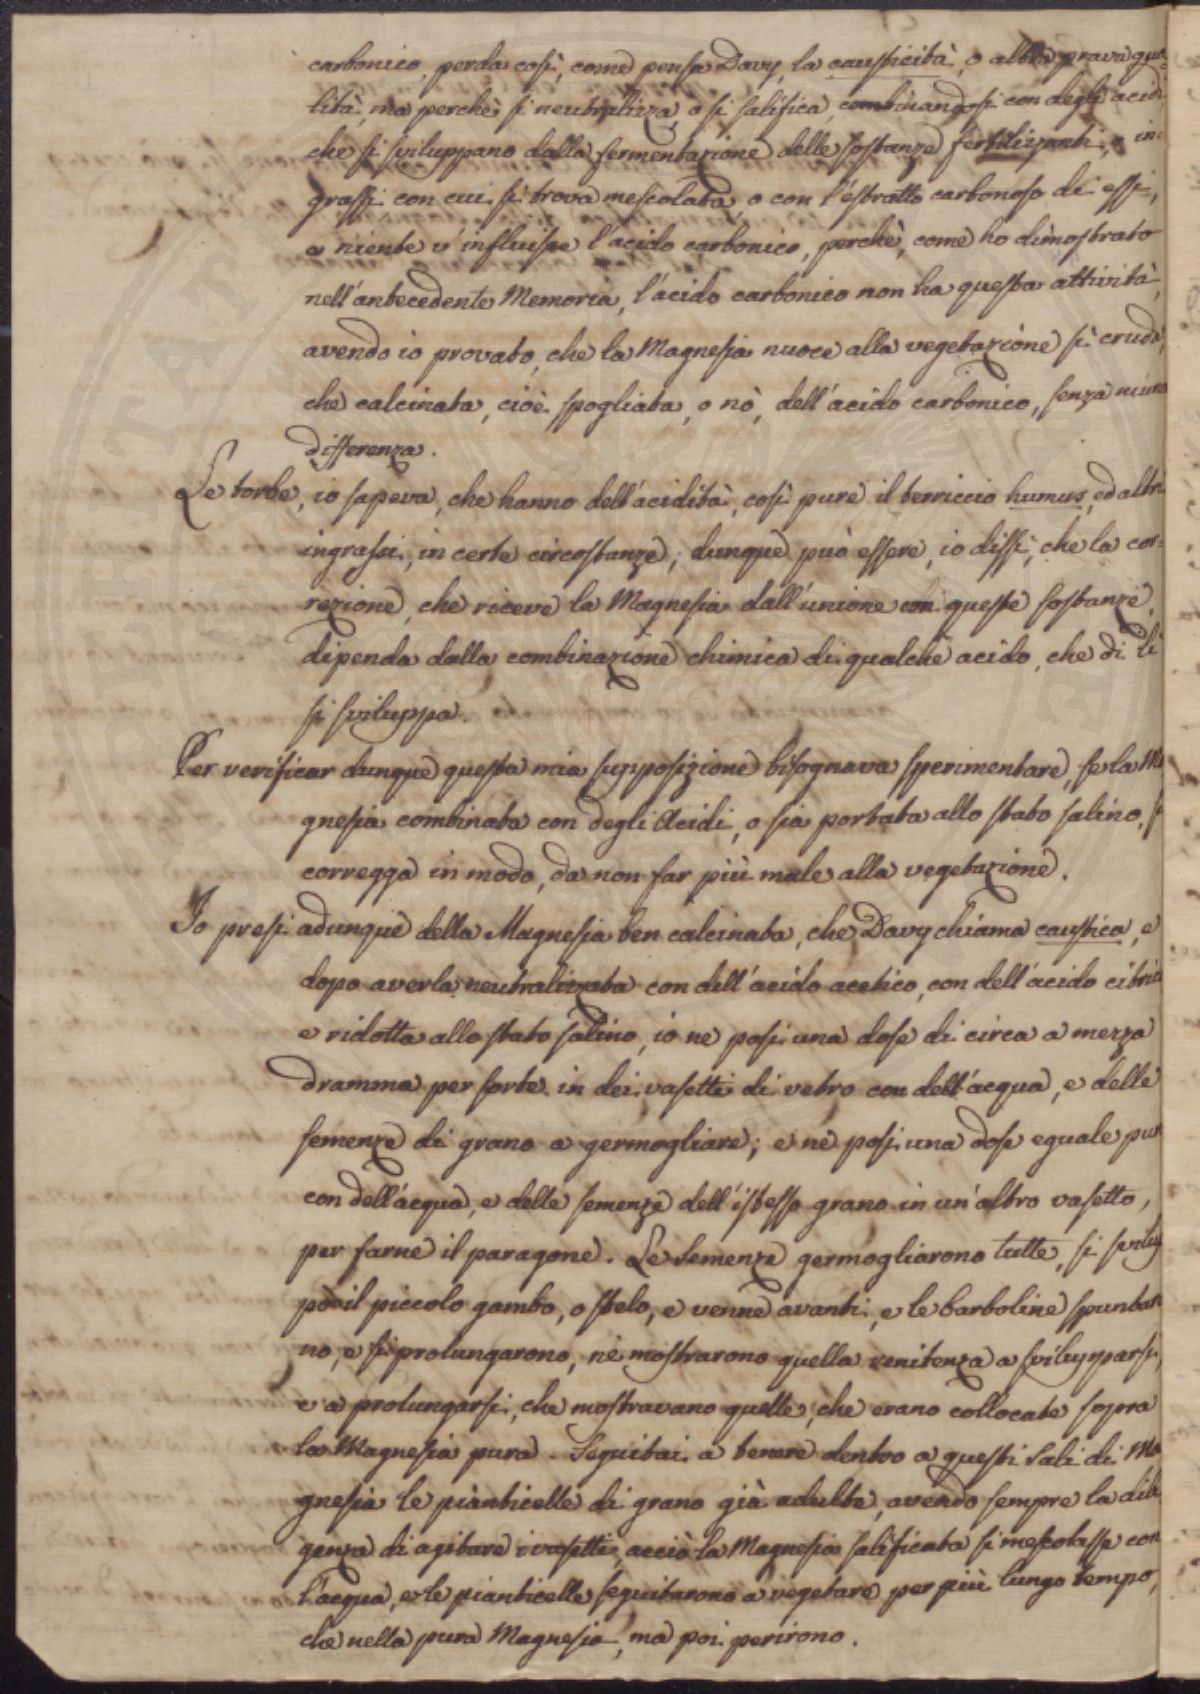 carbonico, perda così, come pensa Davy, la causticità, o altra prava qua
lità, ma perchè si neutralizza o si salifica, combinandosi con degli acidi
che si sviluppano dalla fermentazione delle sostanze fertilizzanti, o in
grassi, con cui si trova mescolata, o con l'estratto carbonoso di essi,
e niente v'influisce l'acido carbonico, perchè, come ho dimostrato
nell'antecedente Memoria, l'acido carbonico non ha questa attività,
avendo io provato, che la Magnesia nuoce alla vegetazione sì cruda,
che calcinata, cioè spogliata, o nò, dell'acido carbonico, senza niuna
differenza.
Le torbe, io sapeva, che hanno dell'acidità, così pure il terriccio humus, ed altri
ingrassi, in certe circostanze; dunque può essere, io dissi, che la cor=
rezione, che riceve la Magnesia dall'unione con queste sostanze,
dipenda dalla combinazione chimica di qualche acido, che di lì
si sviluppa.
Per verificar dunque questa mia supposizione bisognava sperimentare, se la Ma
gnesia combinata con degli Acidi, o sia portata allo stato salino, si
corregga in modo, da non far più male alla vegetazione.
Io presi adunque della Magnesia ben calcinata, che Davy chiama caustica, e
dopo averla neutralizzata con dell'acido acetico, con dell'acido citrico
e ridotta allo stato salino, io ne posi una dose di circa a mezza
dramma per sorte in dei vasetti di vetro con dell'acqua, e delle
semenze di grano a germogliare; e ne posi una dose eguale pur
con dell'acqua, e delle semenze dell'istesso grano in un'altro vasetto,
per farne il paragone. Le Semenze germogliarono tutte, si svilup
pò il piccolo gambo, o stelo, e venne avanti, e le barboline spuntaro
no, e si prolungarono, nè mostrarono quella renitenza a svilupparsi,
e a prolungarsi, che mostravano quelle, che erano collocate sopra
la Magnesia pura. Seguitai a tenere dentro a questi Sali di Ma
gnesia le pianticelle di grano già adulte, avendo sempre la dili
genza di agitare i vasetti, acciò la Magnesia salificata si mescolasse con
l'acqua, e le pianticelle seguitarono a vegetare per più lungo tempo,
che nella pura Magnesia, ma poi perirono.